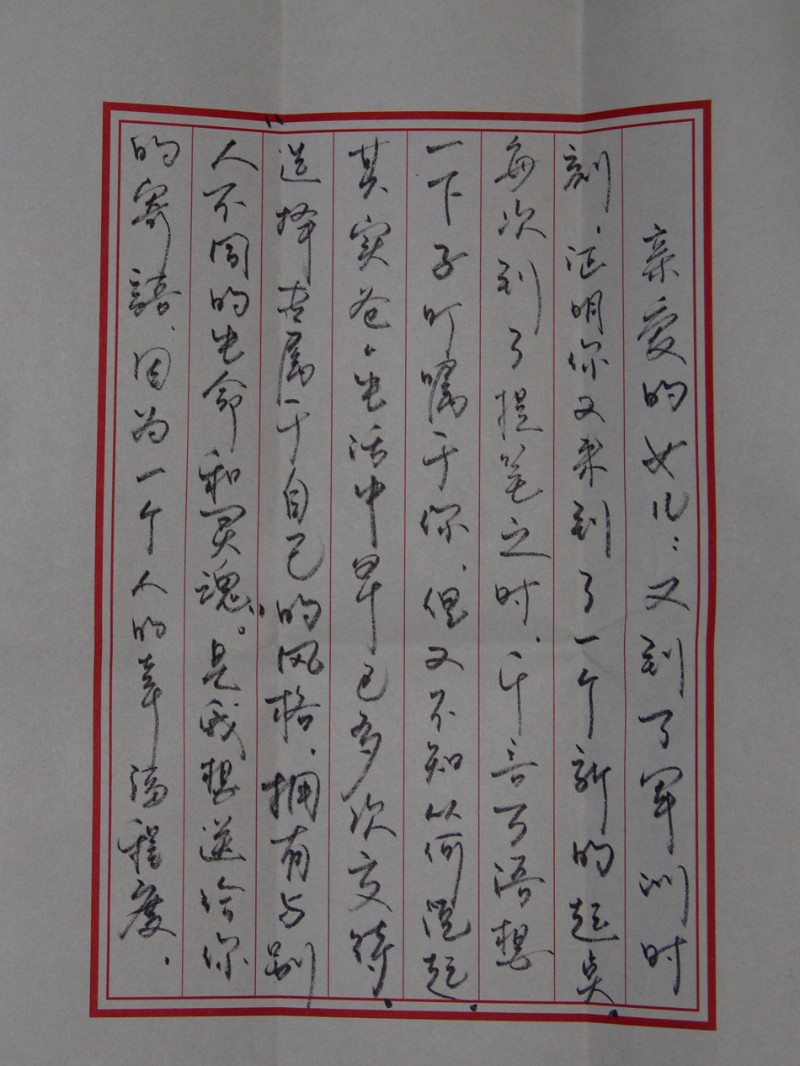 亲爱的女儿：又到了军训时
刻，证明你又来到了一个新的起点。
每次到了提笔之时，千言万语想
一下子叮嘱于你，但又不知从何说起。
其实爸爸生活中早已多次交待，
“选择专属于自己的风格，拥有与别
人不同的生命和灵魂。”是我想送给你
的寄语，因为一个人的幸福程度，